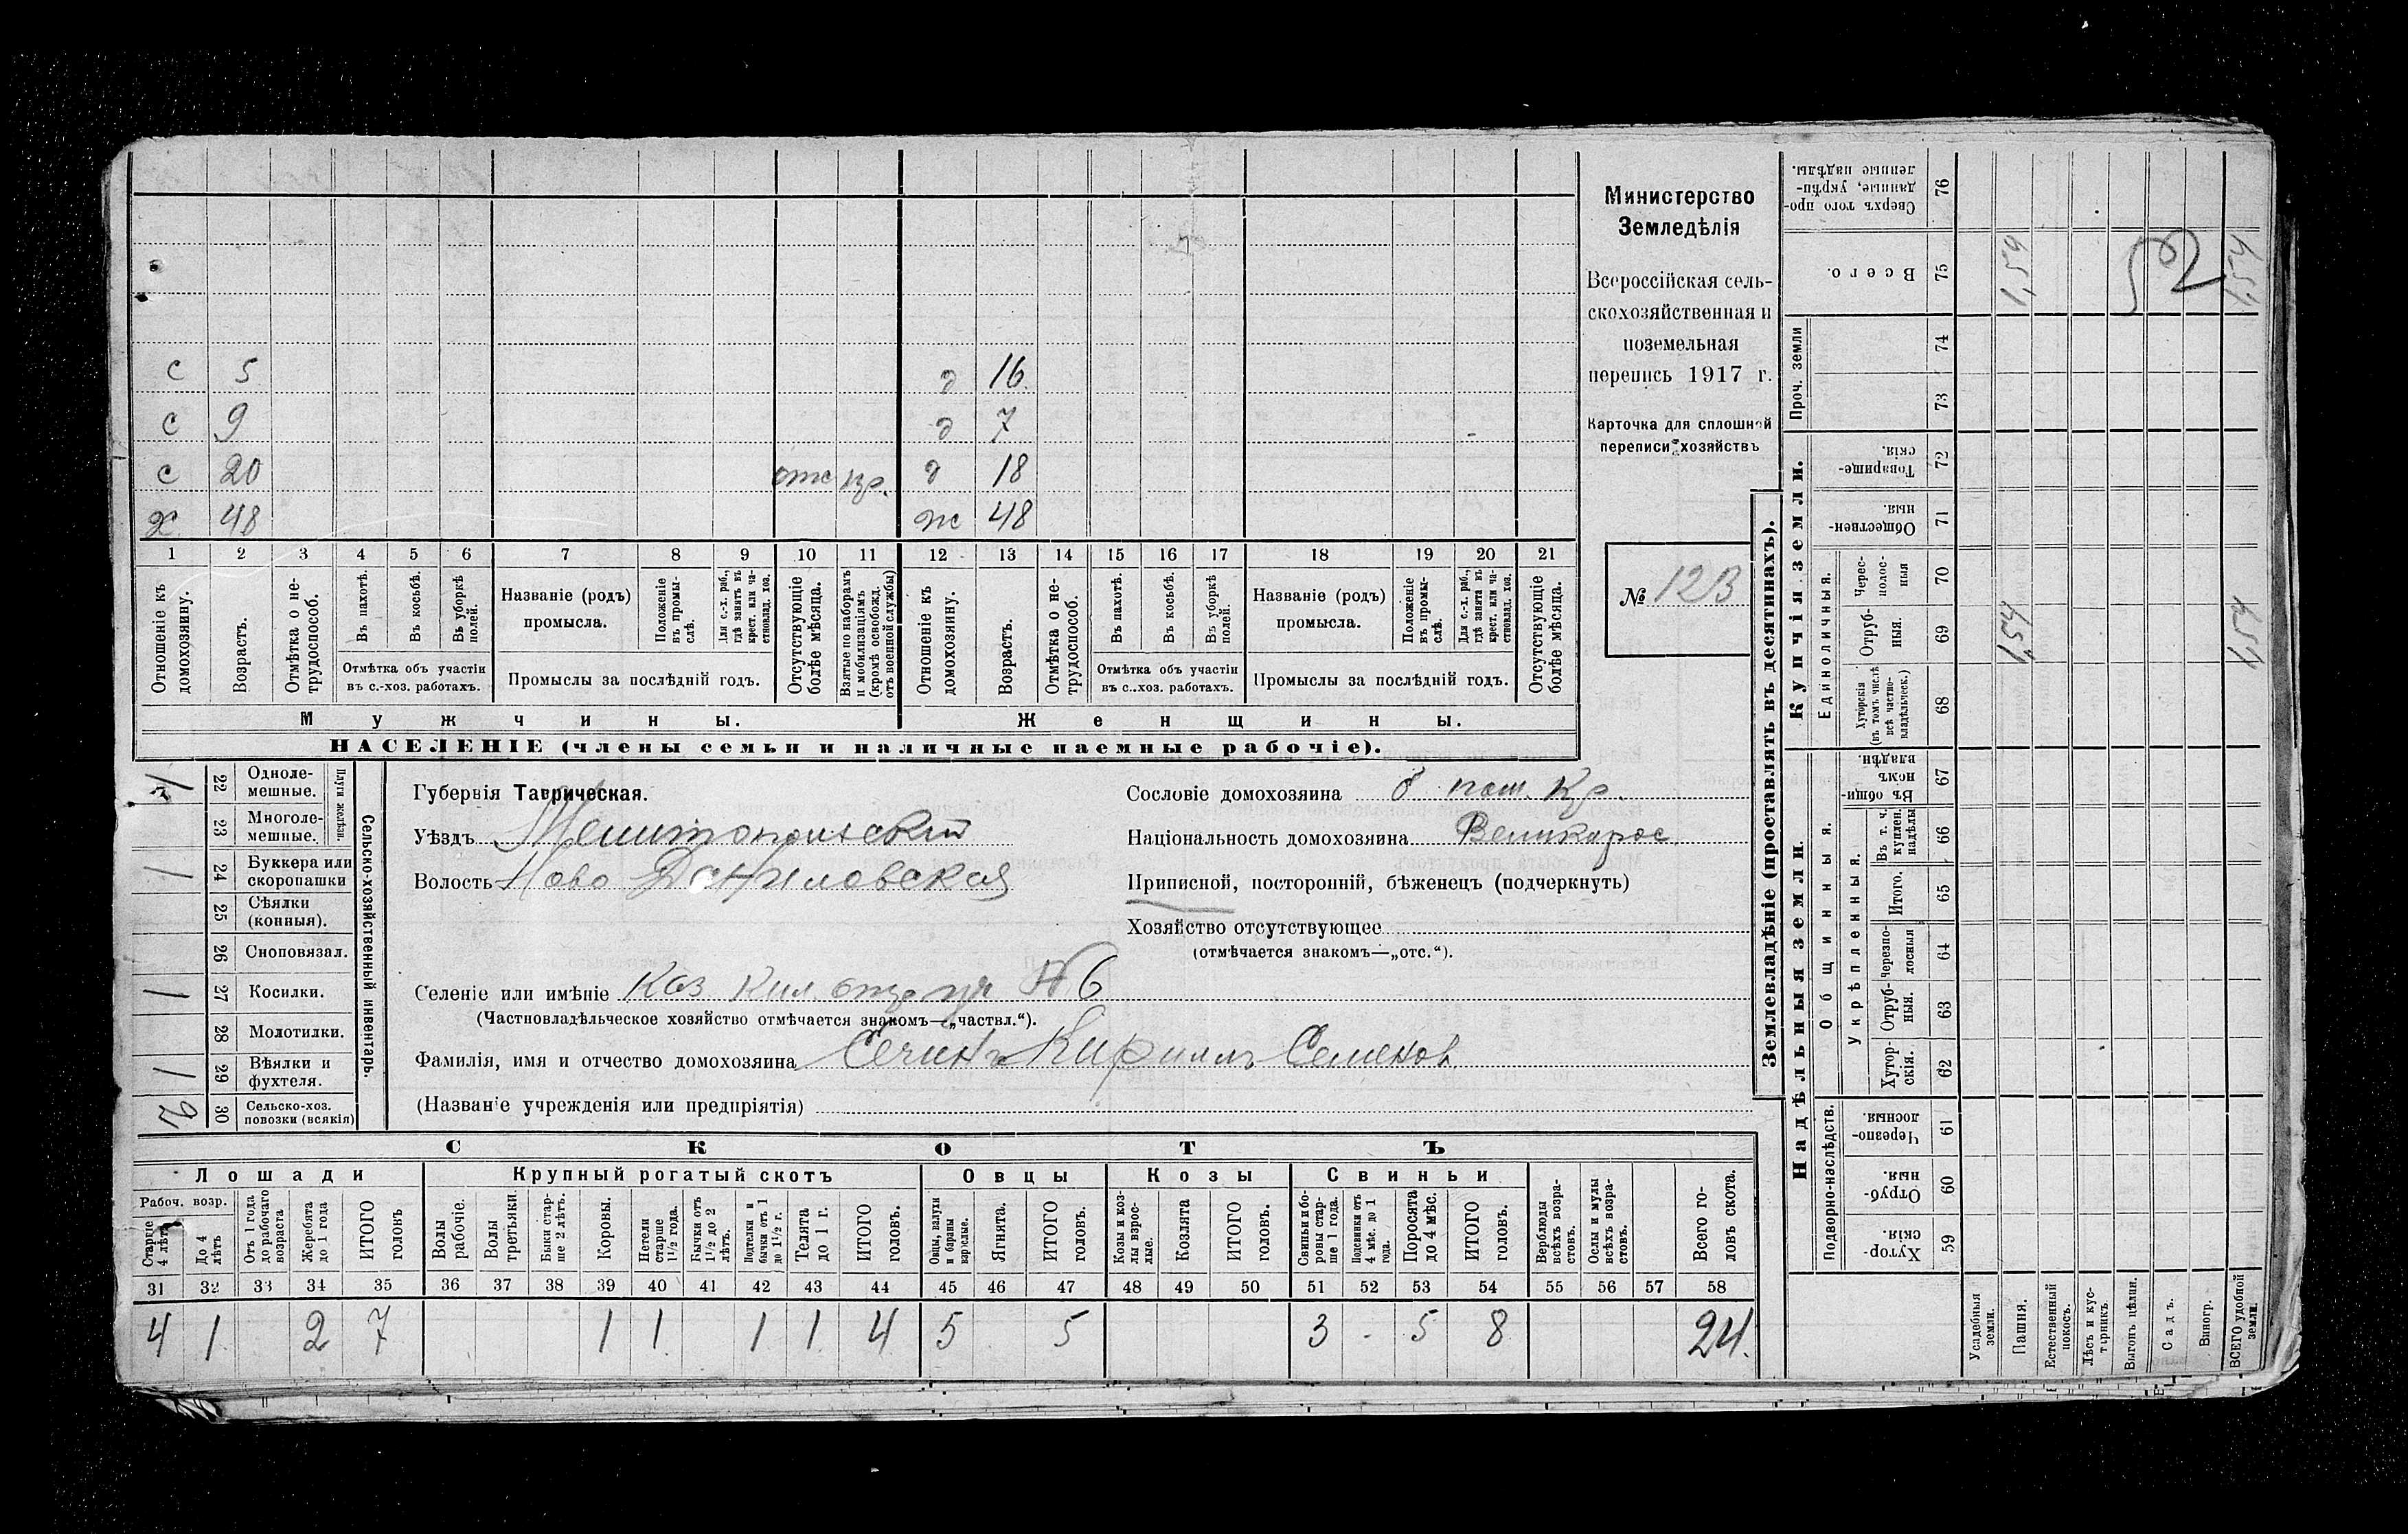 Министерство
Земледѣлія
Всероссійская сель-
скохозяйственная и
поземельная
перепись 1917 г.
Карточка для сплошной
переписи хозяйствъ
№ 123
с 5 д 16
с 9 д 7
с 20 отс кр. д 18
х 48 ж 48
1 2 3 4 5 6 7 8 9 10 11 12 13 14 15 16 17 18 19 20 21
Отношеніе къ домохозяину.
Возрастъ.
Отмѣтка о не-трудоспособ.
Въ пахотѣ.
Въ косьбѣ.
Въ уборкѣ полей.
Отмѣтка объ участіи
въ с.-хоз. работахъ.
Названіе (родъ)
промысла.
Положеніе въ промы-слѣ.
Для с.-х. раб., гдѣ занятъ въ крест. или ча-стновлад. хоз.
Промыслы за послѣдній годъ.
Отсутствующіе болѣе мѣсяца.
Взятые по наборамъ и мобилизаціямъ (кромѣ освобожд. отъ военной службы)
Отношеніе къ домохозяину.
Возрастъ.
Отмѣтка о не-трудоспособ.
Въ пахотѣ.
Въ косьбѣ.
Въ уборкѣ полей.
Отмѣтка объ участіи
въ с.-хоз. работахъ.
Названіе (родъ)
промысла.
Положеніе въ промы-слѣ.
Для с.-х. раб., гдѣ занята въ крест. или ча-стновлад. хоз.
Промыслы за послѣдній годъ.
Отсутствующіе болѣе мѣсяца.
Мужчины.
Женщины.
НАСЕЛЕНІЕ (члены семьи и наличные наемные рабочіе).
Сельско-хозяйственный инвентарь.
Плуги желѣзн.
22 Одноле-мешные.
23 Многоле-мешные.
1 24 Буккера или скоропашки
25 Сѣялки (конныя).
26 Сноповязал.
1 27 Косилки.
28 Молотилки.
1 29 Вѣялки и фухтеля.
30 Сельско-хоз. повозки (всякія)
Губернія Таврическая.
Уѣздъ Мелитопольскій
Волость Ново Даниловская
Сословіе домохозяина б пом. Кр.
Національность домохозяина Великорос.
Приписной, посторонній, бѣженецъ (подчеркнуть)
Хозяйство отсутствующее
(отмѣчается знакомъ—„отс.“).
Селеніе или имѣніе Каз Кил. отр уч №6
(Частновладѣльческое хозяйство отмѣчается знакомъ—„частвл.“).
Фамилія, имя и отчество домохозяина Сечинъ Кириллъ Семенов.
(Названіе учрежденія или предпріятія)
СКОТЪ
Лошади
Крупный рогатый скотъ
Овцы
Козы
Свиньи
Рабоч. возр.
Старше 4 лѣтъ
До 4 лѣтъ
Отъ 1 года до рабочаго возраста
Жеребята до 1 года
ИТОГО головъ
Волы рабочіе.
Волы третьяки.
Быки стар-ше 2 лѣтъ.
Коровы.
Нетели старше 1½ года.
Бычки отъ 1½ до 2 лѣтъ.
Подтелки и бычки отъ 1 до 1½ г.
Телята до 1 г.
ИТОГО головъ.
Овцы, валухи и бараны взрослые.
Ягнята.
ИТОГО головъ.
Козы и коз-лы взрос-лые.
Козлята
ИТОГО головъ.
Свиньи и бо-ровы стар-ше 1 года.
Подсвинки отъ 4 мѣс. до 1 года.
Поросята до 4 мѣс.
ИТОГО головъ.
Верблюды всѣхъ возра-стовъ.
Ослы и мулы всѣхъ возра-стовъ.
Всего го-ловъ скота.
31 32 33 34 35 36 37 38 39 40 41 42 43 44 45 46 47 48 49 50 51 52 53 54 55 56 57 58
4 1 2 7 1 1 1 1 4 5 5 3 - 5 8 24.
Землевладѣніе (проставлять въ десятинахъ).
Надѣльныя земли.
Купчія земли.
Подворно-наслѣдств.
Общинныя.
Укрѣпленныя.
Единоличныя.
Проч. земли
59 Хутор-скія.
60 Отруб-ныя.
61 Черезпо-лосныя
62 Хутор-скія.
63 Отруб-ныя.
64 Черезпо-лосныя
65 Итого.
66 Въ т. ч. куплен. надѣлы
67 Въ общи-номъ владѣн.
68 Хуторскія (въ томъ числѣ всѣ частно-владѣльческ.)
69 Отруб-ныя.
70 Черес-полос-ныя
71 Обществен-ныя.
72 Товарище-скія.
73
74
75 Всего.
76 Сверхъ того про-данные, укрѣп-ленные надѣлы.
Усадебныя земли.
Пашня. 1,54 1,54
Естественный покосъ.
Лѣсъ и кус-тарникъ.
Выгонъ цѣлин.
Садъ.
Виногр.
ВСЕГО удобной земли. 1,54 1,54
52